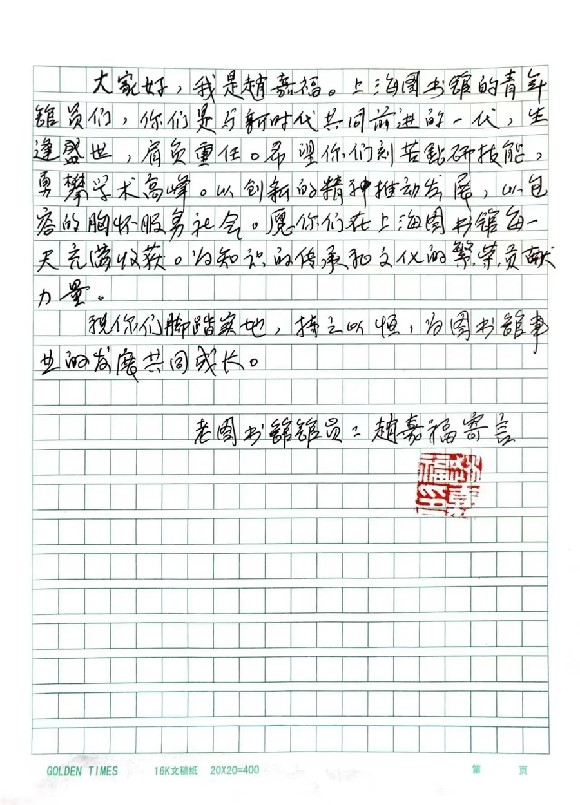 大家好，我是趙嘉福。上海图书馆的青年
館员们，你们是与新时代共同前进的一代，生
逢盛世，肩负重任。希望你们刻苦鉆研技能，
勇攀学术高峰。以创新的精神推动发展，以包
容的胸怀服务社会。愿你们在上海图书馆每一
天充满收获。为知识的传承和文化的繁荣贡献
力量。
祝你们脚踏实地，持之以恒，为图书館事
业的发展共同成长。
老图书館館员：趙嘉福寄言
GOLDEN TIMES 16K文稿纸 20X20=400 第 页